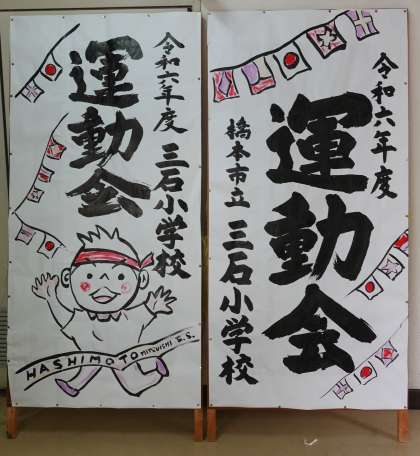 令和六年度
三石小学校
運動会
HASHIMOTO MITSUISHI E.S.
令和六年度
運動会
橋本市立
三石小学校